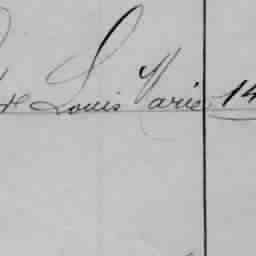 Louis Marie 14